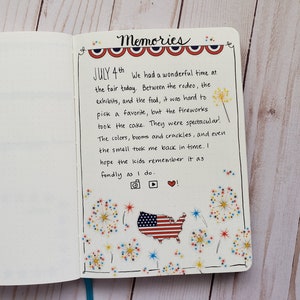 Memories
JULY 4th We had a wonderful time at
the fair today. Between the rodeo, the
exhibits, and the food, it was hard to
pick a favorite, but the fireworks
took the cake. They were spectacular!
The colors, booms and crackles, and even
the smell took me back in time. I
hope the kids remember it as
fondly as I do.